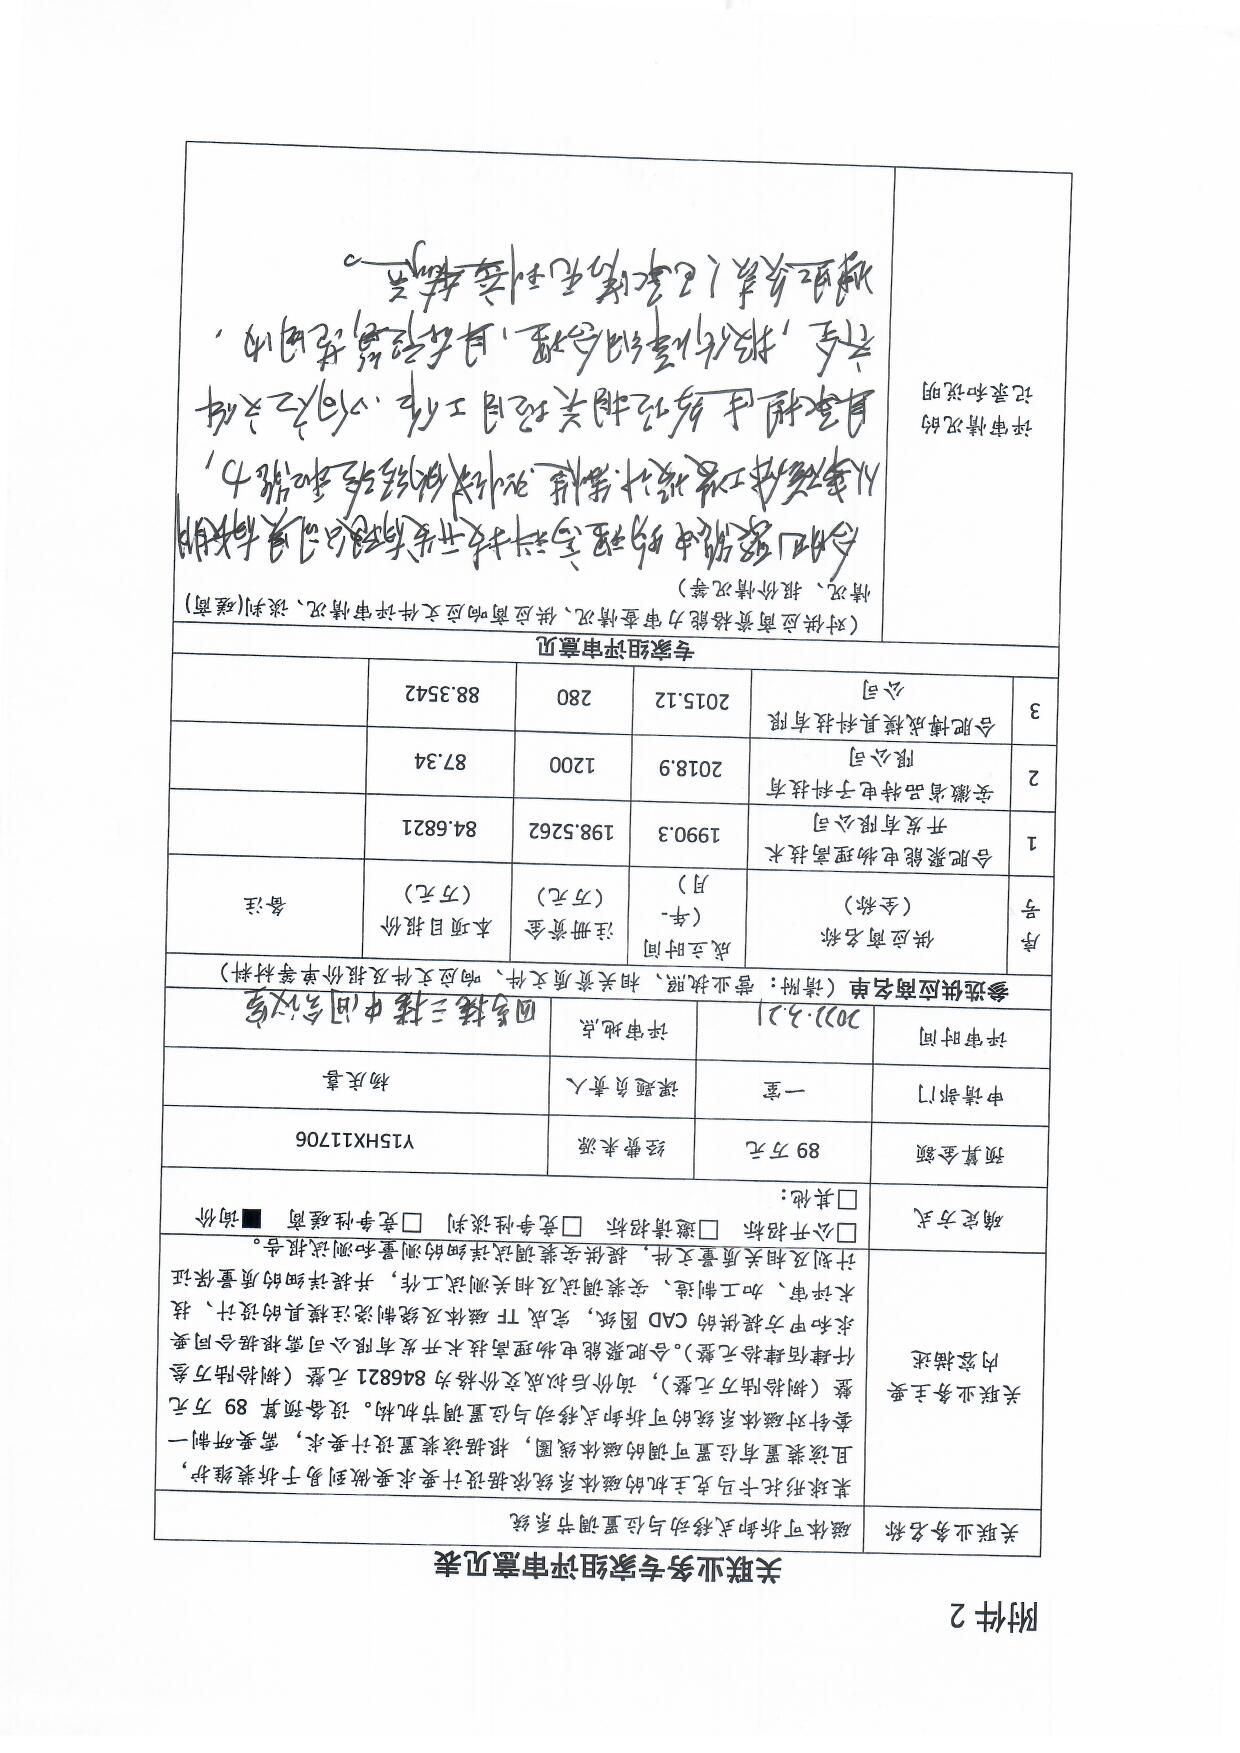 附件 2
关联业务专家组评审意见表
关联业务名称 磁体可拆卸式移动与位置调节系统
关联业务主要
内容描述
某球形托卡马克主机的磁体系统依据设计要求要做到易于拆装维护，
且该装置有位置可调的磁体线圈，根据该装置设计要求，需要研制一
套针对磁体系统的可拆卸式移动与位置调节机构。设备预算 89 万元
整（捌拾陆万元整），询价后拟成交价格为 846821 元整（捌拾陆万叁
仟肆佰肆拾元整）。合肥聚能电物理高技术开发有限公司需根据合同要
求和甲方提供的 CAD 图纸，完成 TF 磁体及绕制浇注模具的设计、技
术评审、加工制造、安装调试及相关测试工作，并提详细的质量保证
计划及相关质量文件，提供安装调试详细的测量和测试报告。
确定方式
□公开招标 □邀请招标 □竞争性谈判 □竞争性磋商 ■询价
□其他：
预算金额 89 万元 经费来源 Y15HX11706
申请部门 一室 课题负责人 杨庆喜
评审时间 2022.3.21 评审地点 四号楼三楼中间会议室
参选供应商名单（请附：营业执照、相关资质文件、响应文件及报价单等材料）
序
号
供应商名称
（全称）
成立时间
（年-
月）
注册资金
（万元）
本项目报价
（万元）
备注
1 合肥聚能电物理高技术
开发有限公司 1990.3 198.5262 84.6821
2 安徽省品特电子科技有
限公司 2018.9 1200 87.34
3 合肥博成模具科技有限
公司 2015.12 280 88.3542
专家组评审意见
评审情况的
记录和说明
（对供应商资格能力审查情况、供应商响应文件评审情况、谈判(磋商)
情况、报价情况等）
合肥聚能电物理高科技开发有限公司具有长期
从事磁体工装设计、制造、测试的经验和能力，
且承担过多项相关项目工作，询价文件
齐全，报价详细合理，且在预算范围内，